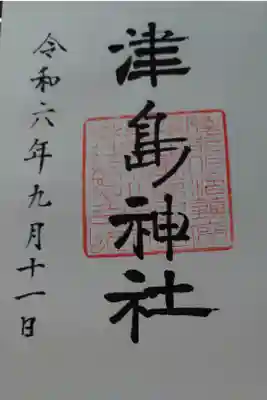 津島神社
令和六年九月十一日